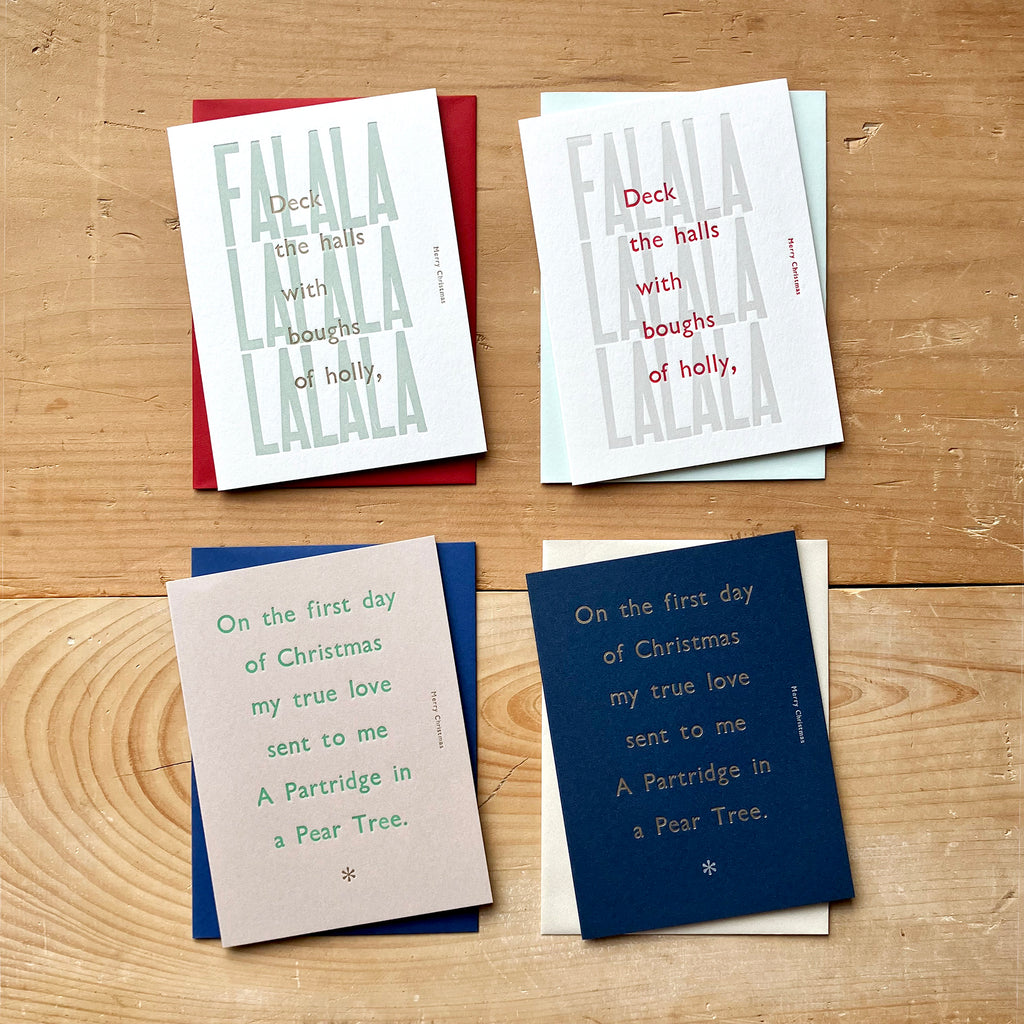 FALALA
LALALA
LALALA
Deck
the halls
with
boughs
of holly,
Merry Christmas
FALALA
LALALA
LALALA
Deck
the halls
with
boughs
of holly,
Merry Christmas
On the first day
of Christmas
my true love
sent to me
A Partridge in
a Pear Tree.
*
Merry Christmas
On the first day
of Christmas
my true love
sent to me
A Partridge in
a Pear Tree.
*
Merry Christmas